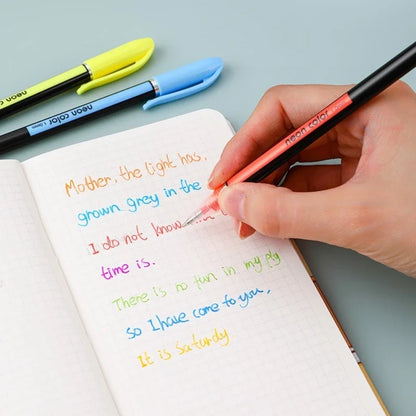 neon color
neon color
neon color
Mother, the light has
grown grey in the
I do not know
time is.
There is no fun in my
so I have come to you,
It is Saturdy